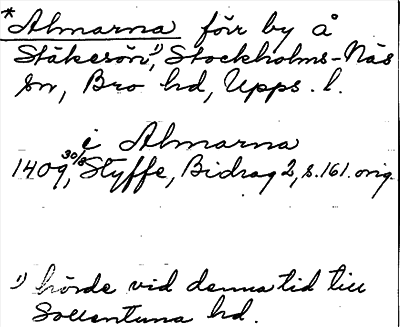 *Almarna förr by å
Stäkesön¹⁾, Stockholms-Näs
sn, Bro hd, Upps. l.
i Almarna
1409 30/8, Styffe, Bidrag 2, s. 161. orig.
¹⁾ hörde vid denna tid till
Sollentuna hd.